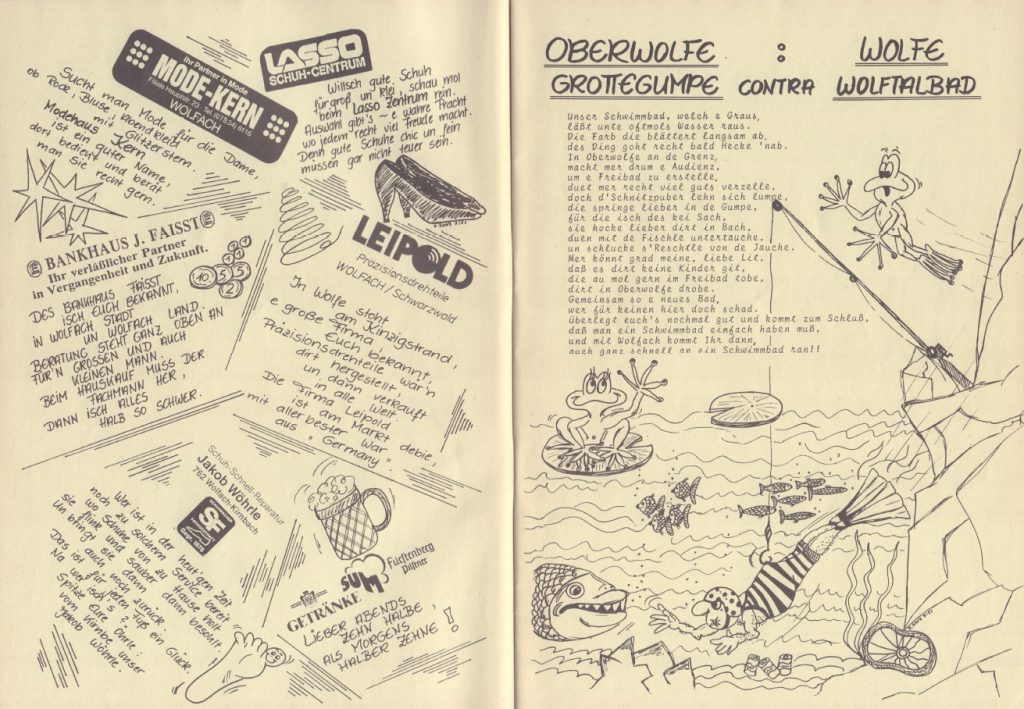 Ihr Partner in Mode
MODE-KERN
Filiale Hauptstr. 23 · Tel. (07834) 6116
WOLFACH
Sucht man Mode für die Dame,
ob Rock, Bluse, Abendkleid
mit Glitzerstern.
Modehaus Kern
ist ein guter Name,
dort bedient und berät
man sie recht gern.
LASSO
SCHUH-CENTRUM
Willsch gute Schuh
für groß un' klei', schau mol
beim Lasso Zentrum rein.
Auswahl gibt's ~ e wahre Pracht
wo jedem recht viel Freude macht.
Denn gute Schuhe chic un' fein
müssen gar nicht teuer sein.
BANKHAUS J. FAISST
Ihr verläßlicher Partner
in Vergangenheit und Zukunft.
DES BANKHAUS FAISST
ISCH EUCH BEKANNT,
IN WOLFACH STADT
UN WOLFACH LAND.
BERATUNG STEHT GANZ OBEN AN
FÜR'N GROSSEN UND AUCH
KLEINEN MANN.
BEIM HAUSKAUF MUSS DER
FACHMANN HER,
DANN ISCH ALLES
HALB SO SCHWER.
10 5 2 1
LEIPOLD
Präzisionsdrehteile
WOLFACH / Schwarzwald
In Wolfe stoht
am Kinzigstrand,
e große Firma,
Euch bekannt,
Präzisionsdrehteile war'n
dirt hergestellt,
un dann verkauft
in alle Welt.
Die Firma Leipold
ist am Markt debie,
mit allerbester War
aus „Germany".
Schuh-Schnell-Reparatur
Jakob Wöhrle
762 Wolfach-Kirnbach
Wer ist in der heut'gen Zeit
noch zu solchem Service bereit
wo Schuhe von zu Hause holt
sie flink und sauber dann besohlt.
Un bringt sie dann
auch noch zurück
Das ist für jeden Fuß ein Glück.
Na wer isch's?
Spitzt Eure Ohre:
vom Kirnbe unser
Jakob Wöhrle.
Fürstenberg
Pilsener
SUM
GETRÄNKE
LIEBER ABENDS
ZEHN HALBE,
ALS MORGENS
HALBER ZEHNE!
OBERWOLFE : WOLFE
GROTTEGUMPE CONTRA WOLFTALBAD
Unser Schwimmbad, welch e Graus,
läßt unte oftmols Wasser raus.
Die Farb die blättert langsam ab,
des Ding goht recht bald Hecke 'nab.
In Oberwolfe an de Grenz,
macht mer drum e Audienz,
um e Freibad zu erstelle,
duet mer recht viel guts verzelle,
doch d'Schnitzpuber lehn sich lumpe,
die springe lieber in de Gumpe,
für die isch des kei Sach,
sie hocke lieber dirt in Bach,
duen mit de Fischle untertauche,
un schlucke s'Reschtle von de Jauche.
Mer könnt grad meine, liebe Lit,
daß es dirt keine Kinder git,
die au mol gern im Freibad tobe,
dirt in Oberwolfe drobe.
Gemeinsam so e neues Bad,
wer für keinen hier doch schad.
überlegt euch's nochmal gut und kommt zum Schluß,
daß man ein Schwimmbad einfach haben muß,
und mit Wolfach kommt Ihr dann,
auch ganz schnell an ein Schwimmbad ran!!